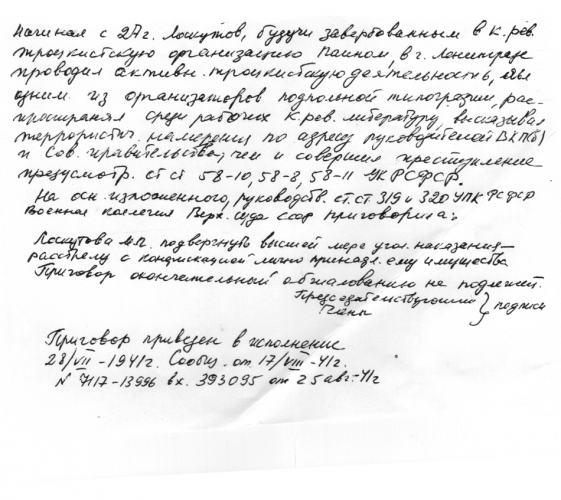 Начиная с 27 г. Лоскутов, будучи завербованным в к.рев.
троцкистскую организацию Паином, в г. Ленинграде
проводил активн. троцкистскую деятельность, явл.
одним из организаторов подпольной типографии, рас-
пространял среди рабочих к.рев. литературу, высказывал
террористич. намерения по адресу руководителей ВКП(б)
и Сов. правительства, чем и совершил преступление
предусмотр. ст ст 58-10, 58-8, 58-11 УК РСФСР.
На осн. изложенного, руководств. ст.ст 319 и 320 УПК РСФСР
Военная коллегия Верх. суда ссср приговорила:
Лоскутова М.П. подвергнуть высшей мере угол. наказания –
расстрелу с конфискацией лично принадл. ему имущества
Приговор окончательный обжалованию не подлежит.
Председательствующий } подписи
Члены
Приговор приведен в исполнение
28/VII – 1941г. Сообщ. от 17/VIII – 41г.
N 7117–13996 вх. 393095 от 25 авг. – 41г